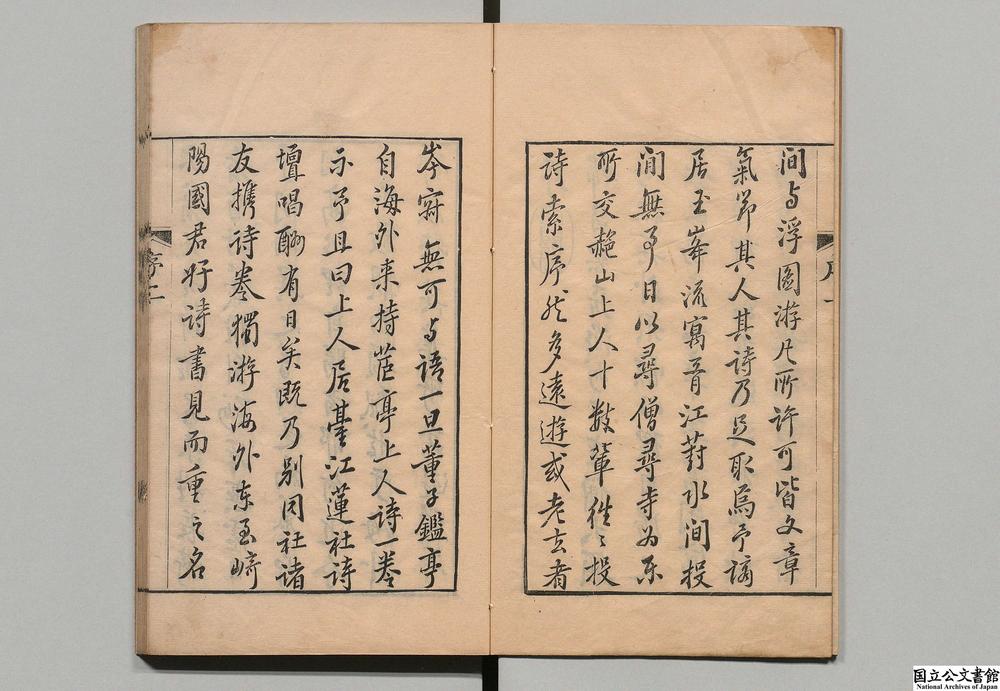 间与浮圖游凡所許可皆文章
氣節其人其詩乃足取焉予謫
居玉峯流寓胥江葑水间投
閒無事日以尋僧尋寺为乐
所交赩山上人十數輩往〻投
詩索序然多遠遊或老去者
序一
岑寂無可与語一旦董子鑑亭
自海外来持茝亭上人詩一卷
示予且曰上人居臺江蓮社詩
壇唱酬有日矣既乃别同社诸
友携诗卷獨游海外东至崎
陽國君好诗書見而重之名
序二
国立公文書館
National Archives of Japan